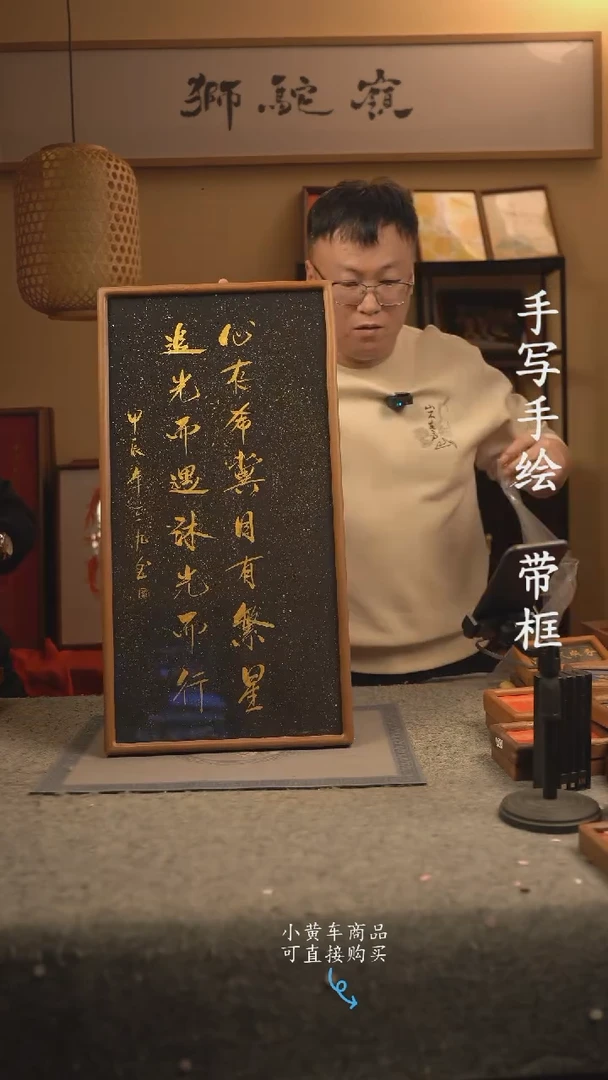 獅駝嶺
心存希冀目有繁星
追光而遇沐光而行
甲辰年
手写手绘
带框
小黄车商品
可直接购买